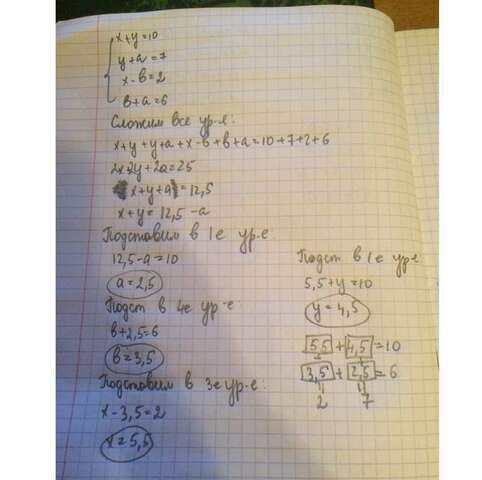 x+y=10
y+a=7
x-в=2
в+a=6
Сложим все ур-я:
x+y+y+a+x-в+в+a=10+7+2+6
2x+2y+2a=25
x+y+a=12,5
x+y=12,5-a
Подставим в 1е ур-е
12,5-a=10
a=2,5
Подст в 4е ур-е
в+2,5=6
в=3,5
Подставим в 3е ур-е:
x-3,5=2
x=5,5
Подст в 1е ур-е
5,5+y=10
y=4,5
5,5+4,5=10
3,5+2,5=6
2 7